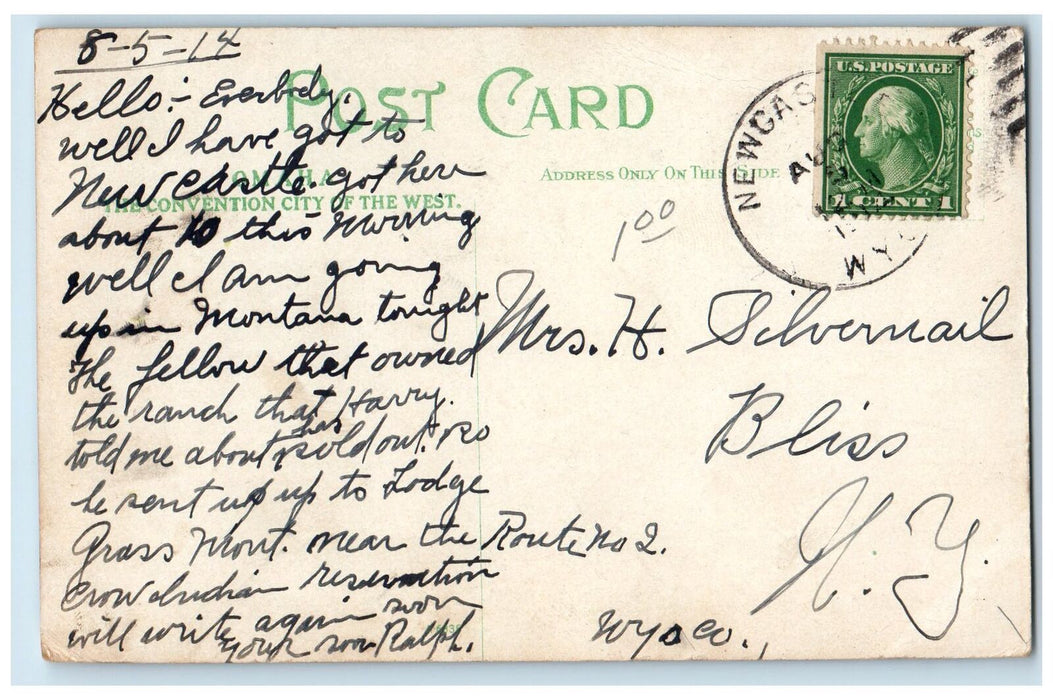 8-5-14
POST CARD
OMAHA
THE CONVENTION CITY OF THE WEST.
ADDRESS ONLY ON THIS SIDE
Hello:- Everbody.
well I have got to
New castle. got here
about 10 this Morning
well I am going
up in Montana tonight
The fellow that owned
the ranch that Harry.
told me about has sold out. so
he sent us up to Lodge
Grass Mont. near the
Crow Indian reservation
will write again soon
your son Ralph.
U.S. POSTAGE
1 CENT 1
NEWCAS
AUG
WYO
1 00
Mrs. H. Silvernail
Bliss
N.Y.
Route no 2.
Wyo co.,